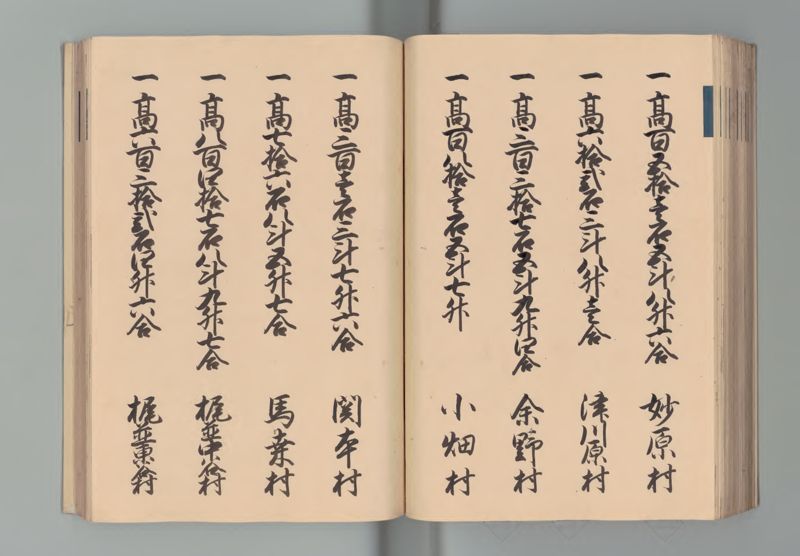 一高百五拾壱石五斗八升六合 妙原村
一高六拾弐石三斗八升壱合 津川原村
一高三百三拾七石五斗九升四合 余野村
一高百八拾壱石五斗七升 小畑村
一高三百壱石三斗七升六合 関本村
一高七拾六石八斗五升七合 馬桑村
一高八百四拾七石八斗九升七合 梶並中谷村
一高六百三拾弐石四升六合 梶並東谷村